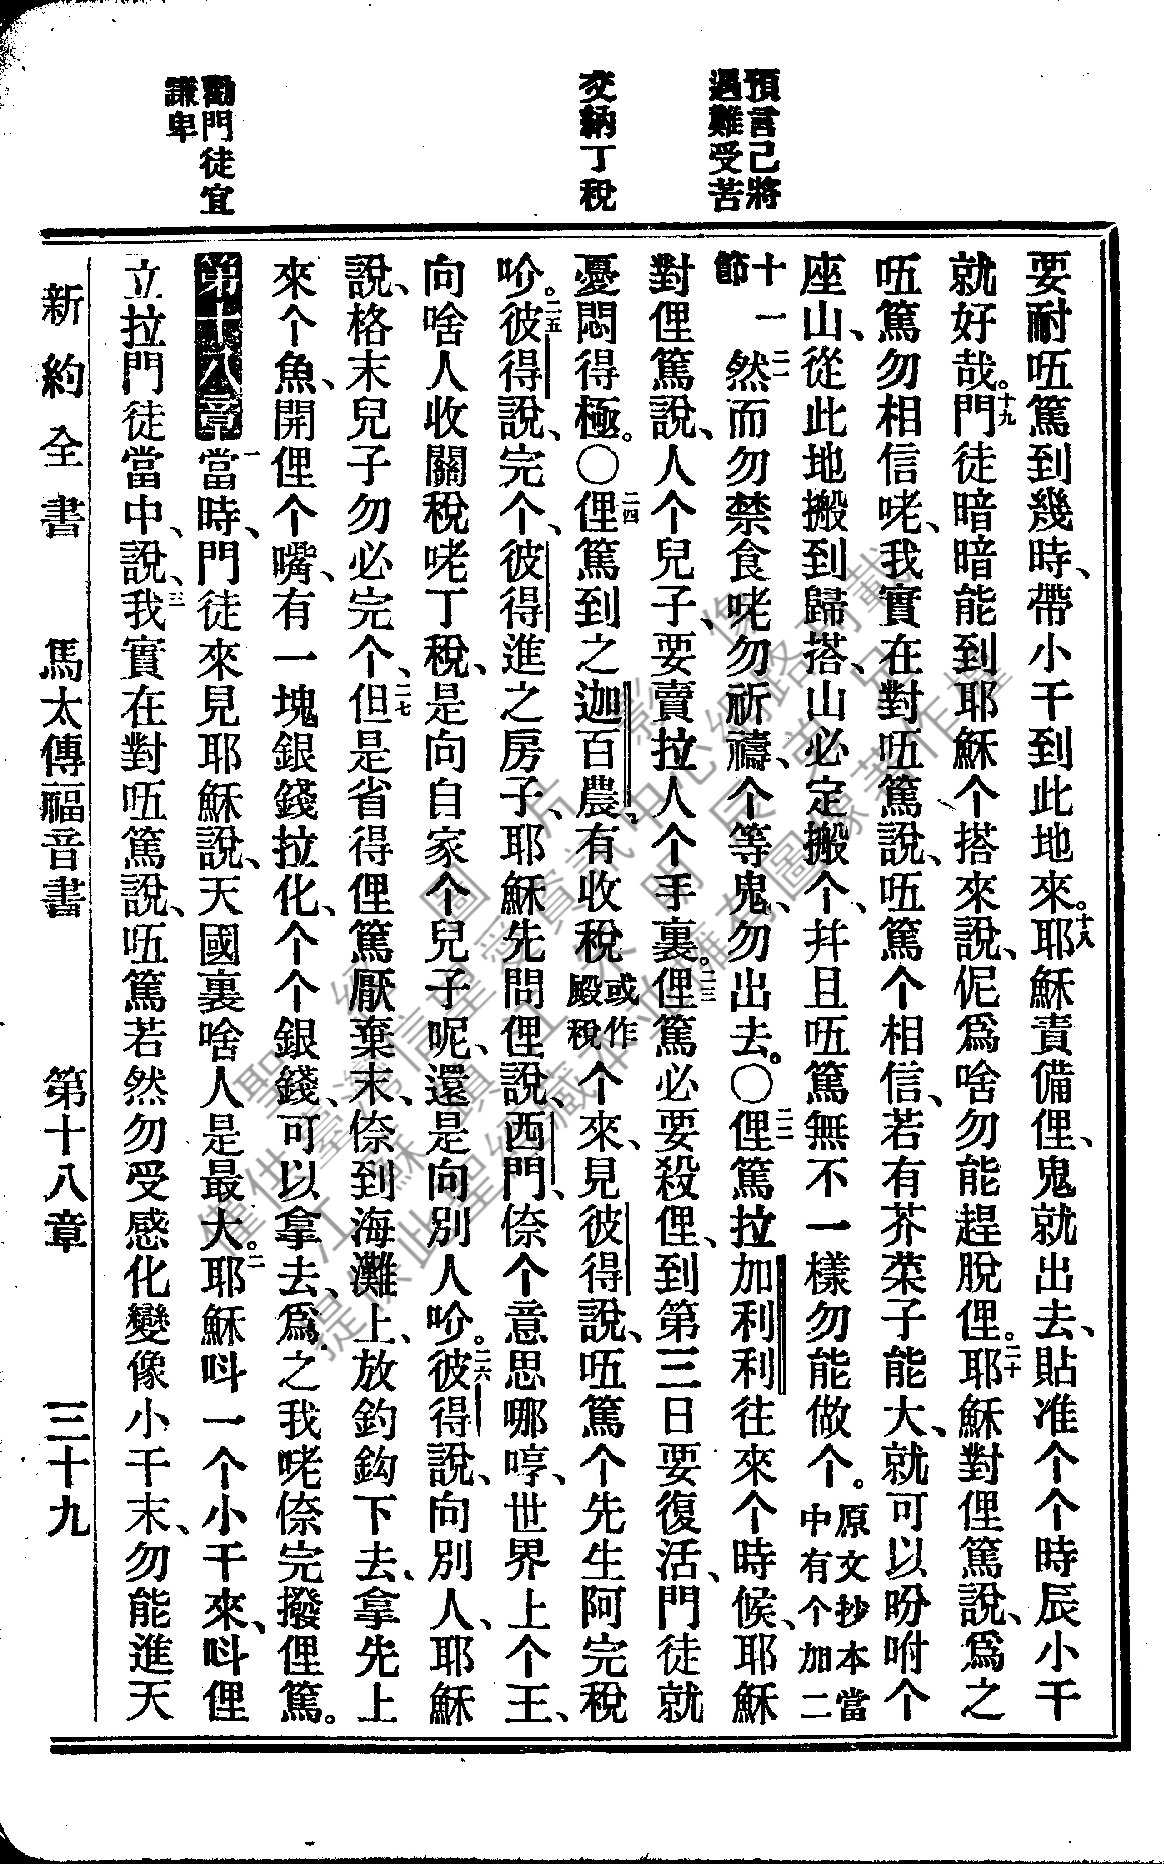 預言己將
遇難受苦
交納丁稅
勸門徒宜
謙卑
要耐㕶篤到幾時、帶小干到此地來。十八耶穌責備俚、鬼就出去、貼准个个時辰小干
就好哉。十九門徒暗暗能到耶穌个搭來說、伲爲啥勿能趕脫俚。二十耶穌對俚篤說、爲之
㕶篤勿相信咾、我實在對㕶篤說、㕶篤个相信、若有芥菜子能大、就可以吩咐个
座山、從此地搬到歸搭、山必定搬个、幷且㕶篤無不一樣勿能做个。原文抄本當中有个加二
十一節 二一然而勿禁食咾勿祈禱、个等鬼、勿出去。〇二二俚篤拉加利利往來个時候、耶穌
對俚篤說、人个兒子、要賣拉人个手裏。二三俚篤必要殺俚、到第三日要復活、門徒就
憂悶得極。〇二四俚篤到之迦百農、有收稅或作殿稅个來、見彼得說、㕶篤个先生阿完稅
吤。二五彼得說、完个、彼得進之房子、耶穌先問俚說、西門、倷个意思哪哼、世界上个王、
向啥人收關稅咾丁稅、是向自家个兒子呢、還是向別人吤。二六彼得說、向別人、耶穌
說、格末兒子勿必完个、二七但是省得俚篤厭棄末、倷到海灘上、放釣鈎下去、拿先上
來个魚、開俚个嘴、有一塊銀錢拉化、个个銀錢、可以拿去、爲之我咾倷完撥俚篤。
第十八章 一當時、門徒來見耶穌說、天國裏啥人是最大。二耶穌呌一个小干來、呌俚
立拉門徒當中、說、三我實在對㕶篤說、㕶篤若然勿受感化變像小干末、勿能進天
新約全書 馬太傳福音書 第十八章 三十九
聖經圖片影像
僅供臺灣信望愛資訊中心網路刊載
提供此聖經藏本並擁有圖像著作權